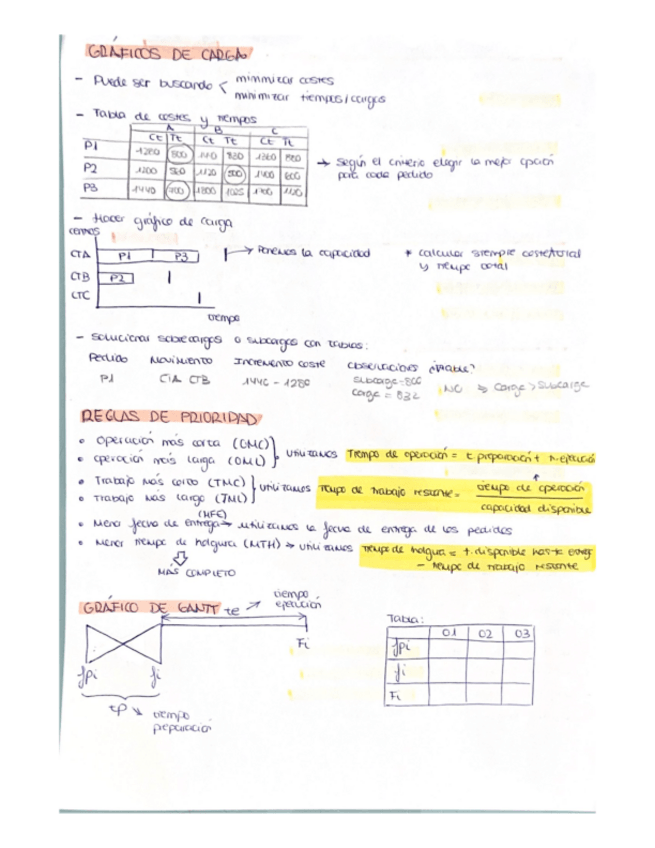 GRÁFICOS DE CARGA
- Puede ser buscando < minimizar costes
minimizar tiempos/cargas
- Tabla de costes y tiempos
A B C
Ct Tt Ct Tt Ct Tt
P1 1280 800 820 1260
P2 1200 1120 500 1400 600
P3 1440 700 1800
→ según el criterio elegir la mejor opción
para cada pedido
- Hacer gráfico de carga
centros
CTA P1 P3 → Ponemos la capacidad
* calcular siempre coste total
y tiempo total
CTB P2
CTC
tiempo
- Solucionar sobrecargas o subcargas con tablas:
Pedido Movimiento Incremento coste Observaciones ¿Viable?
P1 CTA CTB 1440 - 1280 subcarga = 800 NO ⇒ Carga > Subcarga
carga = 832
REGLAS DE PRIORIDAD
• Operación más corta (OMC)
• operación más larga (OML) } utilizamos Tiempo de operación = t. preparación + t. ejecució
• Trabajo más corto (TMC)
• Trabajo más largo (TML) } utilizamos Tiempo de trabajo restante = tiempo de operación
capacidad disponible
(MFE)
• Menor fecha de entrega → utilizamos la fecha de entrega de los pedidos
• Menor tiempo de holgura (MTH) → utilizamos Tiempo de holgura = t. disponible hasta entreg
- tiempo de trabajo restante
MÁS COMPLETO
GRÁFICO DE GANTT te → tiempo
ejecución
Fi
fpi fi
tp → tiempo
preparación
Tabla:
O1 O2 O3
fpi
fi
Fi